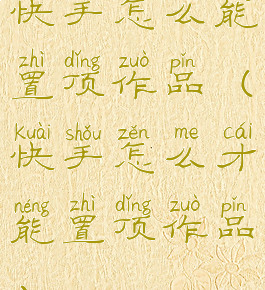 快手怎么能
zhì dǐng zuò pǐn
置顶作品（
kuài shǒu zěn me cái
快手怎么才
néng zhì dǐng zuò pǐn
能置顶作品